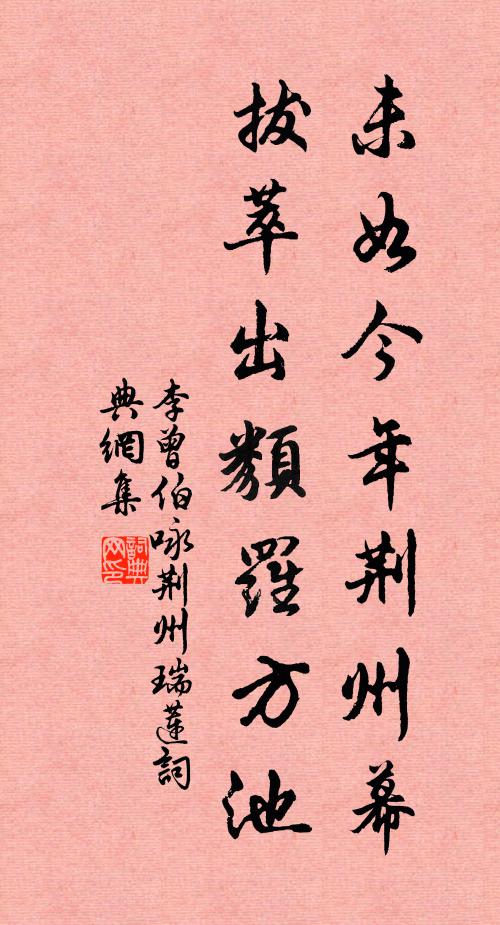 未如今年荆州幕
拔萃出類羅方池
李曾伯咏荆州瑞蓮詞
典網集
詞典
网印